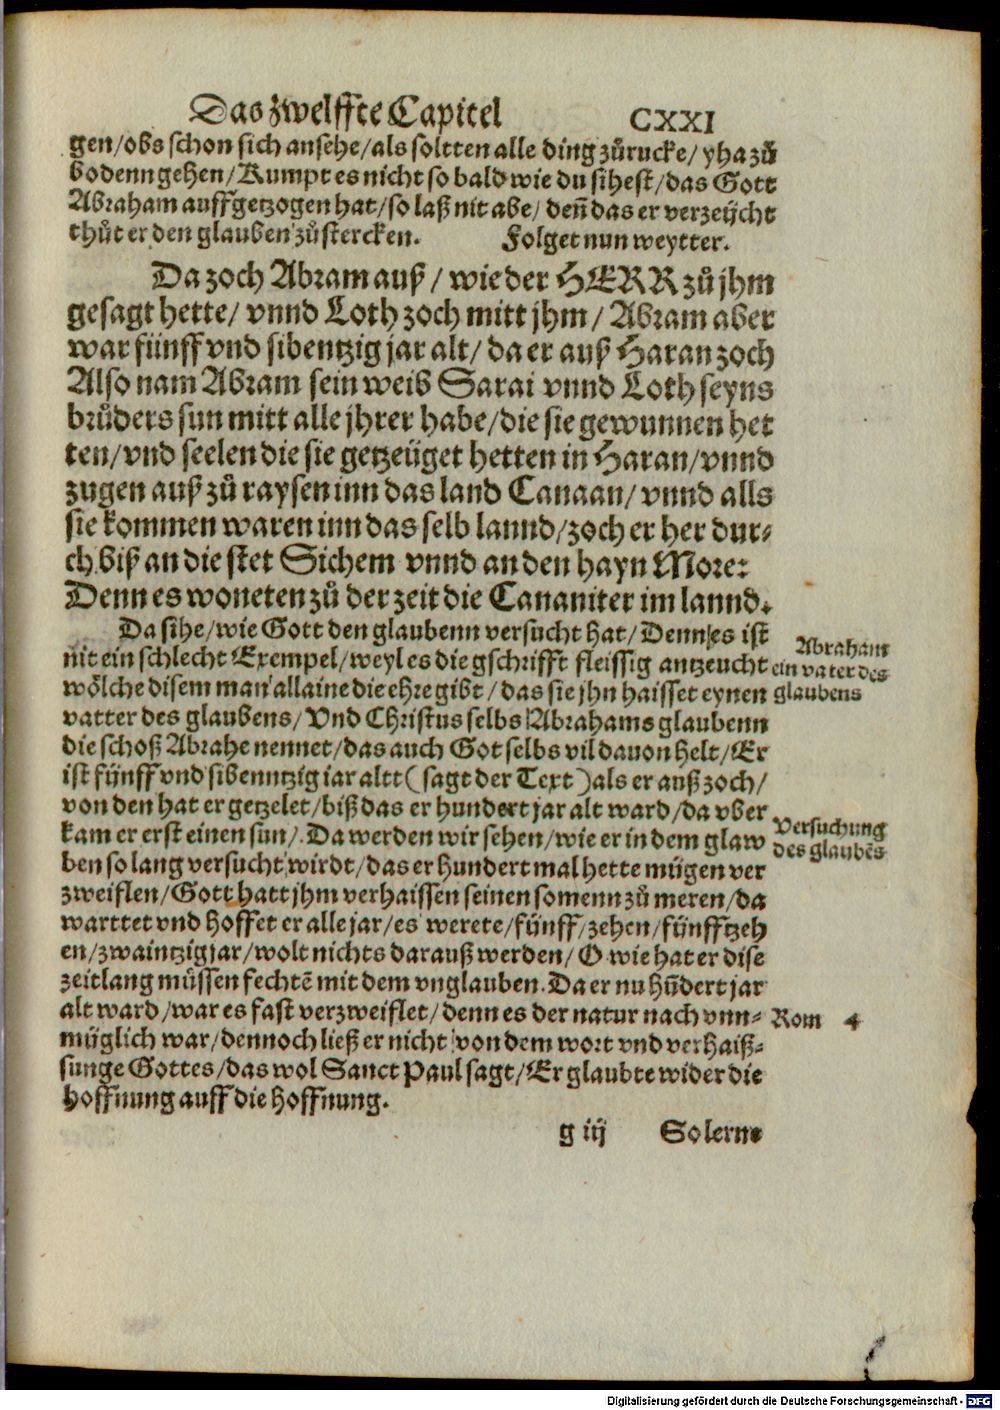 Das zwelffte Capitel CXXI
gen/obs schon sich ansehe/als soltten alle ding zů rucke/ yha zů
bodenn gehen/ Kumpt es nicht so bald wie du sihest/das Gott
Abraham auffgetzogen hat/so laß nit abe/ deñ das er verzeücht
thůt er den glauben zů stercken. Folget nun weytter.
Da zoch Abram auß / wie der HERR zů jhm
gesagt hette/ vnnd Loth zoch mitt jhm / Abram aber
war fünff vnd sibentzig jar alt/ da er auß Haran zoch
Also nam Abram sein weib Sarai vnnd Loth seyns
brůders sun mitt alle jhrer habe/die sie gewunnen het
ten/vnd seelen die sie getzeüget hetten in Haran/vnnd
zugen auß zů raysen inn das land Canaan/ vnnd alls
sie kommen waren inn das selb lannd/zoch er her dur⸗
ch biß an die stet Sichem vnnd an den hayn More:
Denn es woneten zů der zeit die Cananiter im lannd.
Da sihe/wie Gott den glaubenn versucht hat/ Denn es ist
nit ein schlecht Exempel/weyl es die gschrifft fleissig antzeucht
wölche disem man allaine die ehre gibt / das sie jhn haisset eynen
vatter des glaubens/ Vnd Christus selbs Abrahams glaubenn
die schoß Abrahe nennet/das auch Got selbs vil dauon helt/Er
ist fünff vnd sibenntzig iar altt (sagt der Text) als er auß zoch/
von den hat er getzelet/biß das er hundert jar alt ward/da vber
kam er erst einen sun/. Da werden wir sehen/wie er in dem glaw
ben so lang versucht wirdt/das er hundert mal hette mügen ver
zweiflen/Gott hatt jhm verhaissen seinen somenn zů meren/da
warttet vnd hoffet er alle jar/es werete/fünff/zehen/fünfftzeh
en/zwaintzig jar/wolt nichts darauß werden/ O wie hat er dise
zeitlang müssen fechtē mit dem vnglauben. Da er nu hūdert jar
alt ward/war es fast verzweiflet/denn es der natur nach vnn⸗
müglich war/dennoch ließ er nicht von dem wort vnd verhaiß⸗
sunge Gottes/das wol Sanct Paul sagt/Er glaubte wider die
hoffnung auff die hoffnung.
g iij Solern
Abraham
ein vater des
glaubens
Versuchung
des glaubēs
Rom 4
Digitalisierung gefördert durch die Deutsche Forschungsgemeinschaft - DFG